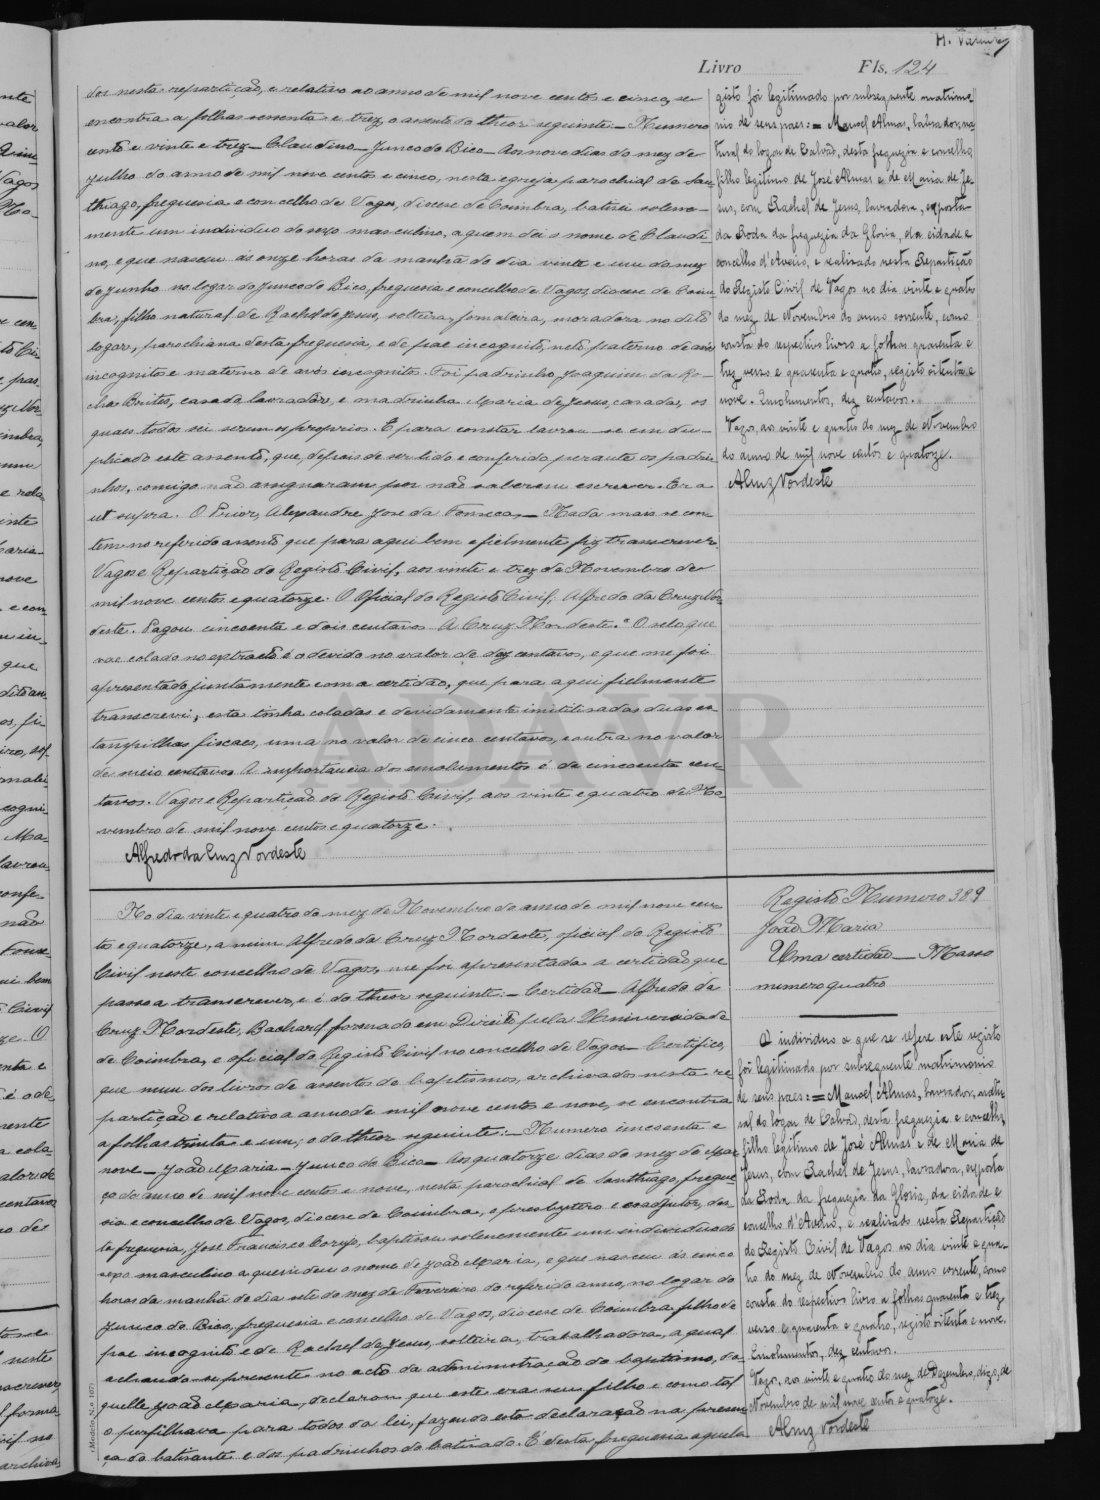 Livro Fls. 124
dos nesta repartição, e relativo ao anno de mil nove centos e cinco, se
encontra a folhas sessenta e trez, o assento do theor seguinte: — Numero
cento e vinte e trez — Claudino — Junco do Bico — Aos nove dias do mez de
julho do anno de mil nove centos e cinco, nesta egreja parochial de San
thiago, freguesia e concelho de Vagos, diocese de Coimbra, batisei solene-
mente um individuo do sexo masculino, a quem dei o nome de Claudi
no, e que nasceu ás onze horas da manhã do dia vinte e um do mez
de junho no logar do Junco do Bico, freguesia e concelho de Vagos, diocese de Coim
bra, filho natural de Rachel de Jesus, solteira, jornaleira, moradora no dito
logar, parochiana desta freguesia, e de pae incognito, neto paterno de avós
incognitos e materno de avós incognitos. Foi padrinho, Joaquim da Ro-
cha Brites, casado lavrador, e madrinha Maria de Jesus, casada, os
quaes todos sei serem os proprios. E para constar lavrou-se em du-
plicado este assento, que, depois de ser lido e conferido perante os padri
nhos, comigo não assignaram por não saberem escrever. Era
ut supra. O Prior, Alexandre José da Fonseca — Nada mais se con
tem no referido assento que para aqui bem e fielmente fiz transcrever.
Vagos e Repartição do Registo Civil, aos vinte e trez de Novembro de
mil nove centos e quatorze. O Oficial do Registo Civil, Alfredo da Cruz Nor
deste. Pagou cincoenta e dois centavos A Cruz Nordeste." O selo que
vae colado no extracto é o devido no valor de dez centavos, e que me foi
apresentado juntamente com a certidão, que para aqui fielmente
transcrevi, esta tinha coladas e devidamente inutilisadas duas es
tampilhas fiscaes, uma no valor de cinco centavos, e outra no valor
de meio centavo. A importancia dos emolumentos é de cincoenta cen
tavos. Vagos e Repartição do Registo Civil, aos vinte e quatro de No
vembro de mil nove centos e quatorze.
Alfredo da Cruz Nordeste
gisto foi legitimado por subsequente matrimo-
nio de seus paes: = Manoel Almas, lavrador, na-
tural do logar de Calvão, desta freguezia e concelho,
filho legitimo de José Almas e de Maria de Je-
sus, com Rachel de Jesus, lavradora, exposta
da Roda da freguezia da Gloria, da cidade e
concelho d'Aveiro, e realizado nesta Repartição
do Registo Civil de Vagos no dia vinte e quatro
do mez de Novembro do anno corrente, como
consta do respectivo livro a folhas quarenta e
trez, verso e quarenta e quatro, registo oitenta e
nove. Emolumentos, dez centavos.
Vagos, aos vinte e quatro do mez de Novembro
do anno de mil nove centos e quatorze.
ACruz Nordeste
No dia vinte e quatro do mez de Novembro do anno de mil nove cen-
to e quatorze, a mim Alfredo da Cruz Nordeste, oficial do Registo
Civil neste concelho de Vagos, me foi apresentada a certidão, que
passo a transcrever, e é do theor seguinte: — Certidão — Alfredo da
Cruz Nordeste, Bacharel formado em Direito pela Universidade
de Coimbra, e oficial do Registo Civil no concelho de Vagos — Certifico,
que num dos livros de assentos de baptismos, archivados nesta re
partição e relativo a anno de mil nove cento e nove, se encontra
a folhas trinta e um, o do theor seguinte: — Numero cincoenta e
nove — João Maria — Junco do Bico — Aos quatorze dias do mez de Mar
ço do anno de mil nove centos e nove, nesta parochial de Santhiago, fregue
sia e concelho de Vagos, diocese de Coimbra, o presbytero e coadjutor, des-
ta freguesia, José Francisco Corujo, baptisou solenemente um individuo do
sexo masculino a quem deu o nome de João Maria, e que nasceu ás cinco
horas da manhã do dia sete do mez de Fevereiro do referido anno, no logar do
Junco do Bico, freguesia e concelho de Vagos, diocese de Coimbra filho de
pae incognito e de Rachel de Jesus, solteira, trabalhadora, a qual
achando-se presente no acto da administração do baptismo, da
quelle João Maria, declarou que este era seu filho e como tal
o perfilhava para todos da lei, fazendo esta declaração na presen
ça do batisante e dos padrinhos do batisado. É desta freguesia aquela
Registo Numero 389
João Maria
Uma certidão — Masso
numero quatro
O individuo a que se refere este registo
foi legitimado por subsequente matrimonio
de seus paes: = Manoel Almas, lavrador, natu-
ral do logar de Calvão, desta freguezia e concelho,
filho legitimo de José Almas e de Maria de
Jesus, com Rachel de Jesus, lavradora, exposta
da Roda da freguezia da Gloria, da cidade e
concelho d'Aveiro, e realizado nesta Repartição
do Registo Civil de Vagos no dia vinte e qua-
tro do mez de Novembro do anno corrente, como
consta do respectivo livro a folhas quarenta e trez
verso e quarenta e quatro, registo oitenta e nove.
Emolumentos, dez centavos.
Vagos, aos vinte e quatro do mez de Dezembro, digo, de
Novembro de mil nove centos e quatorze.
ACruz Nordeste
(Modelo N.º 107)